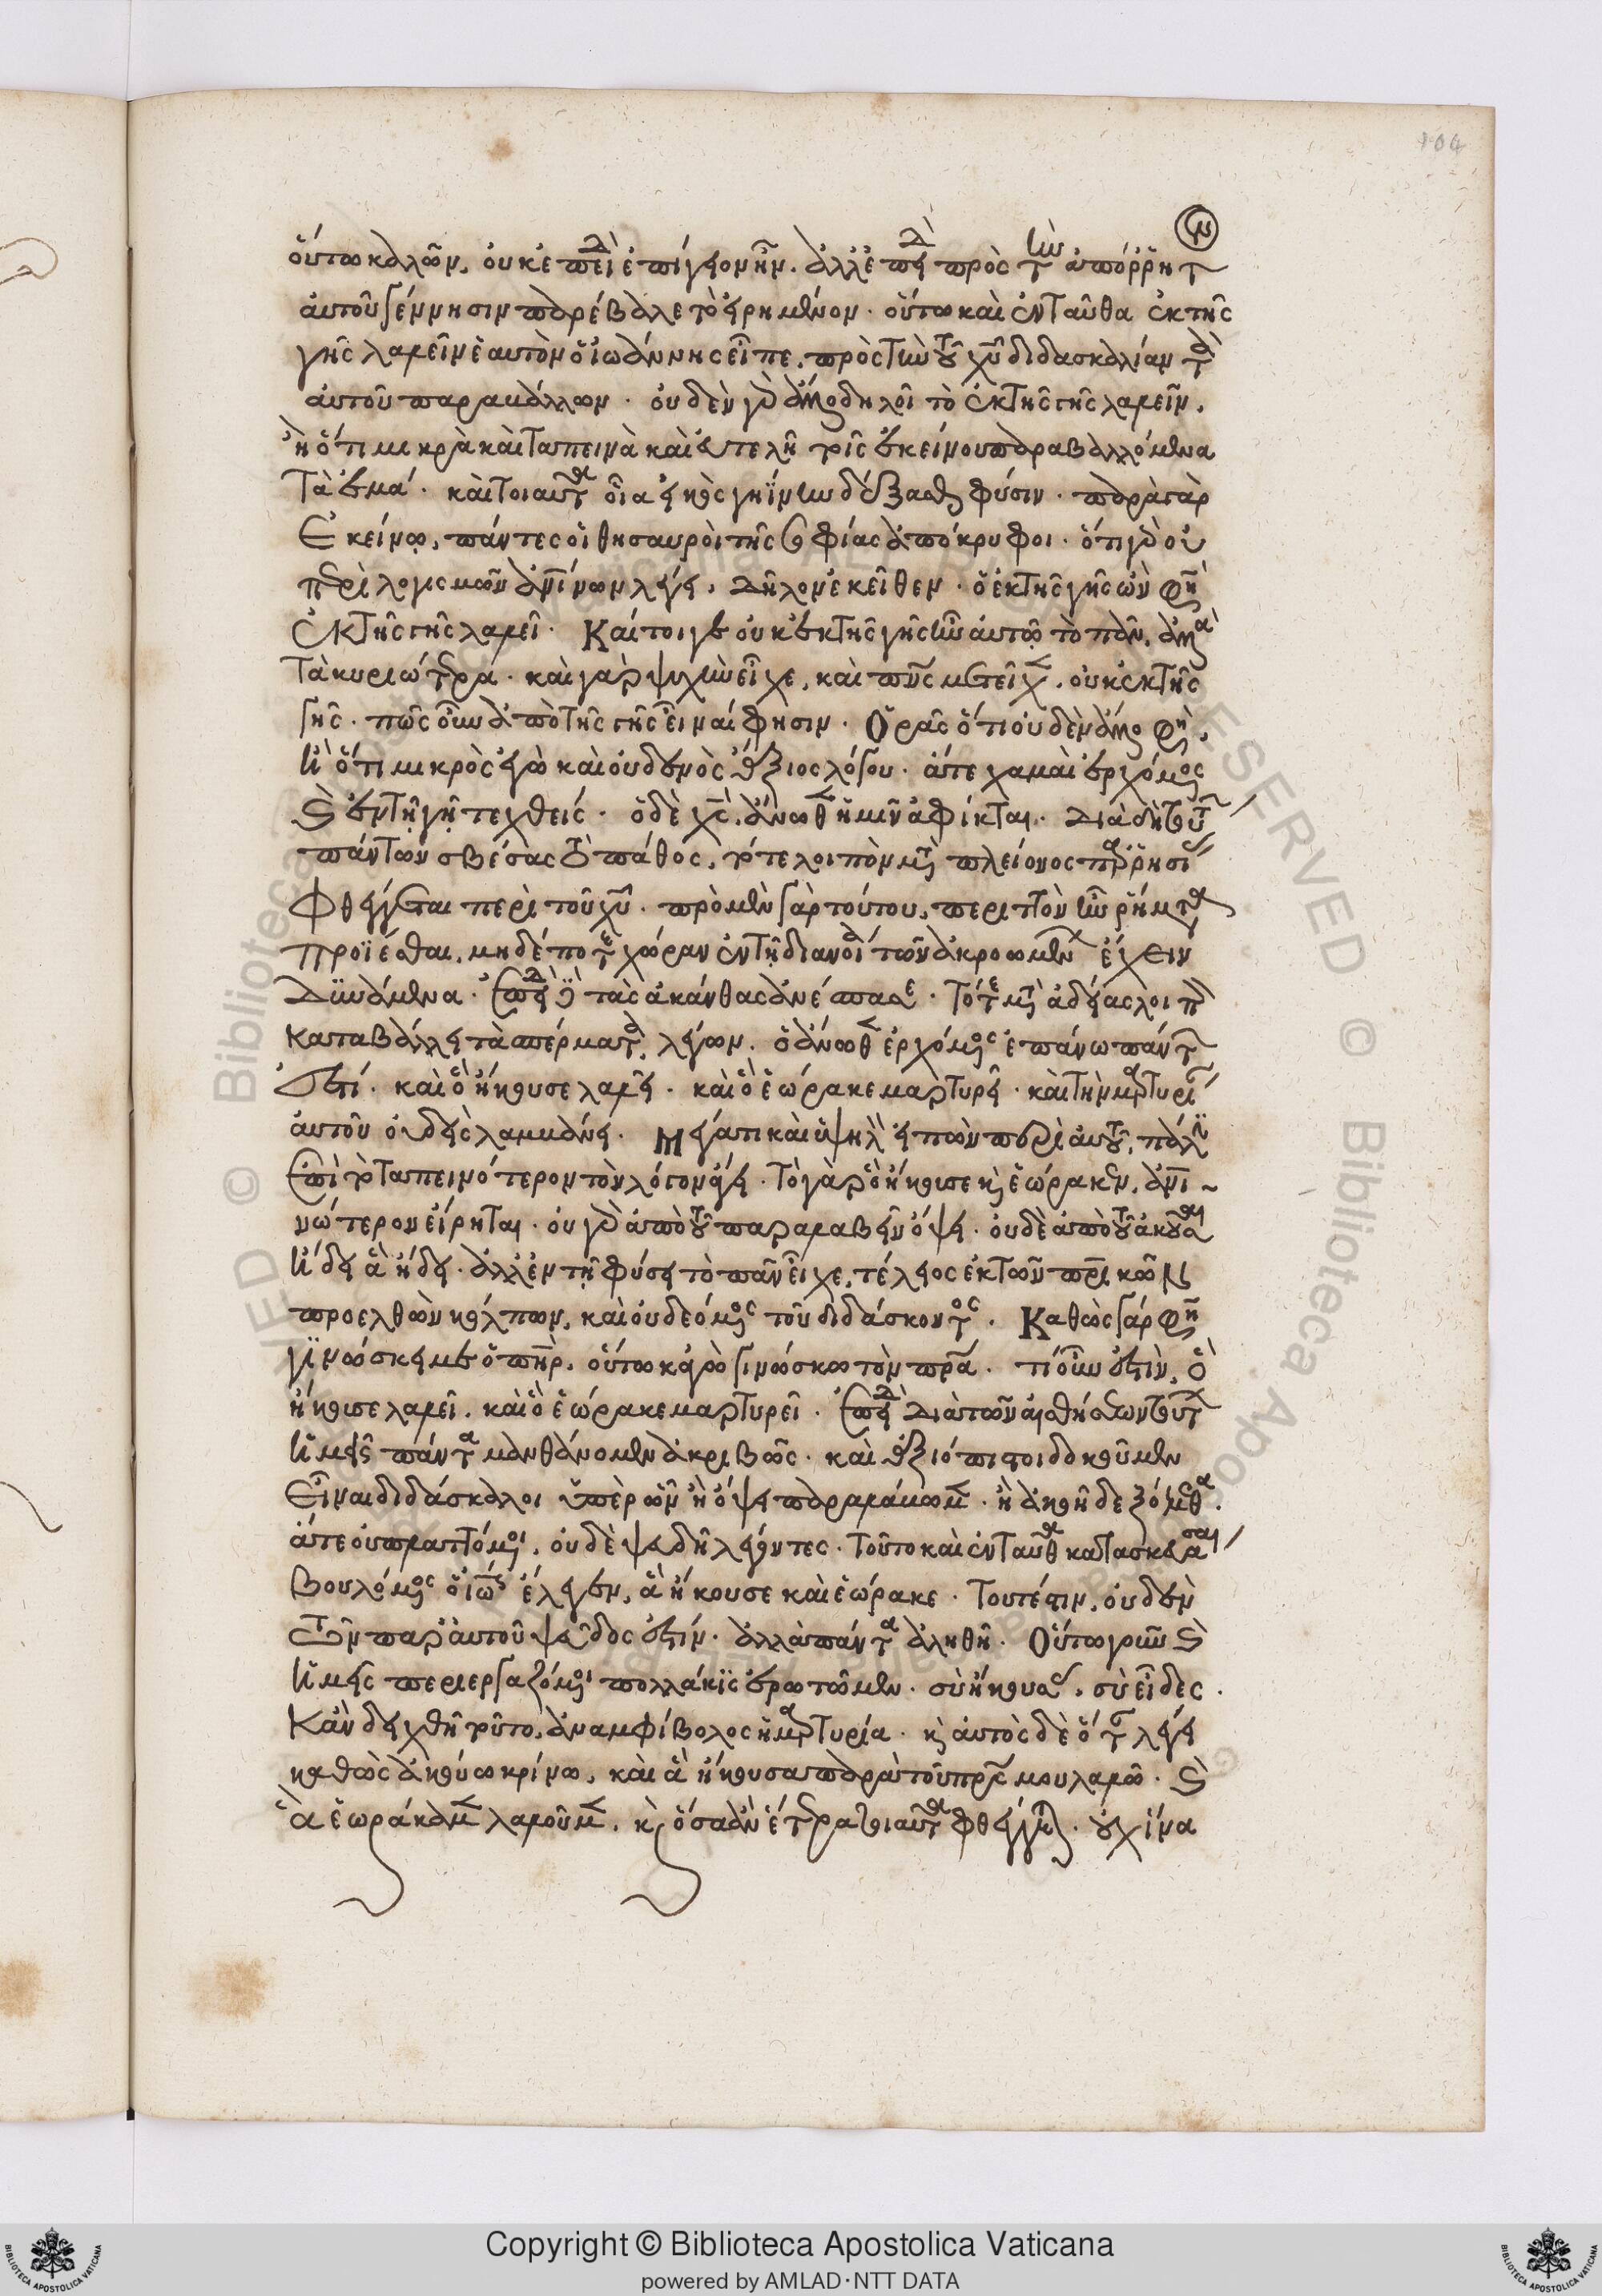 104
οὕτω καλῶν, οὐκ ἐπειδὴ ἐπίγειον ἦν. ἀλλ' ἐπειδὴ πρὸς τὴν ἀπόρρητον
αὐτοῦ γέννησιν παρέβαλε τὸ εἰρημένον· οὕτω καὶ ἐνταῦθα ἐκ τῆς
γῆς λαλεῖν ἑαυτὸν ὁ ἰωάννης εἶπε, πρὸς τὴν τοῦ χυ διδασκαλίαν τὰ
αὐτοῦ παραβάλλων· οὐδὲν γὰρ ἄλλο δηλοῖ τὸ ἐκ τῆς γῆς λαλεῖν,
ἢ ὅτι μικρὰ καὶ ταπεινὰ καὶ εὐτελῆ τοῖς ἐκείνου παραβαλλόμενα
τὰ ἐμά· καὶ τοιαῦτα οἷα εἰκὸς γηΐνην δέξασθαι φύσιν· παρὰ γὰρ
Ἐκείνῳ, πάντες οἱ θησαυροὶ τῆς σοφίας ἀπόκρυφοι· ὅτι γὰρ οὐ
περὶ λογισμῶν ἀνίνων λέγει, δῆλον ἐκεῖθεν· ὁ ἐκ τῆς γῆς ὢν φη
ἐκ τῆς γῆς λαλεῖ· Καίτοιγε οὐκ ἐκ τῆς γῆς ἦν αὐτῷ τὸ πᾶν, ἀλλὰ
τὰ κυριώτερα· καὶ γὰρ ψυχὴν εἶχε, καὶ πνς μετεῖχεν, οὐκ ἐκ τῆς
γῆς· πῶς οὖν ἀπὸ τῆς γῆς εἶναί φησιν· Ὁρᾶς ὅτι οὐδὲν ἄλλο φη,
ἢ ὅτι μικρὸς ἐγὼ καὶ οὐδενὸς ἄξιος λόγου· ἅτε χαμαὶ ἐρχόμενος
καὶ ἐν τῇ γῇ τεχθείς· ὁ δὲ χς, ἄνωθεν ἡμῖν ἀφῖκται· Διὰ δὴ τούτων
πάντων σβέσας τὸ πάθος, τότε λοιπὸν μετὰ πλείονος παρρησίας
φθέγγεται περὶ τοῦ χυ· πρὸ μὲν γὰρ τούτου, περιττὸν ἦν ῥήματα
προΐεσθαι, μηδέποτε χώραν ἐν τῇ διανοίᾳ τῶν ἀκροωμένων ἔχειν
δυνάμενα· ἐπειδὴ δὲ τὰς ἀκάνθας ἀνέσπασε· Τότε μετὰ ἀδείας λοιπὸν
καταβάλλει τὰ σπέρματα, λέγων. ὁ ἄνωθεν ἐρχόμενος ἐπάνω πάντων
ἐστί· καὶ ὃ ἤκουσε λαλεῖ· καὶ ὃ ἑώρακε μαρτυρεῖ· καὶ τὴν μαρτυρίαν
αὐτοῦ οὐδεὶς λαμβάνει. Μέγα τι καὶ ὑψηλὸν εἰπὼν περὶ αὐτοῦ, πάλιν
ἐπὶ τὸ ταπεινότερον τὸν λόγον ἄγει· Τὸ γὰρ ὃ ἤκουσε καὶ ἑώρακεν, ἀνι
νώτερον εἴρηται· οὐ γὰρ ἀπὸ τοῦ παραλαβεῖν ὄψει· οὐδὲ ἀπὸ τοῦ ἀκοῦσαι
ἤδει ἃ ᾔδει· ἀλλ' ἐν τῇ φύσει τὸ πᾶν εἶχε, τέλειος ἐκ τῶν πρικῶν
προελθὼν κόλπων, καὶ οὐ δεόμενος τοῦ διδάσκοντος· Καθὼς γάρ φη
γινώσκει με ὁ πηρ, οὕτω κἀγὼ γινώσκω τὸν πρα· τί οὖν ἐστὶν, ὃ
ἤκουσε λαλεῖ, καὶ ὃ ἑώρακε μαρτυρεῖ· ἐπειδὴ διὰ τῶν αἰσθήσεων τούτων
ἡμεῖς πάντα μανθάνομεν ἀκριβῶς· καὶ ἀξιόπιστοι δοκοῦμεν
εἶναι διδάσκαλοι ὑπὲρ ὧν ἢ ὄψει παραλάβωμεν· ἢ ἀκοῇ δεξόμεθα·
ἅτε οὐ πλαττόμενοι, οὐδὲ ψευδῆ λέγοντες· Τοῦτο καὶ ἐνταῦθα κατασκευάσαι
Βουλόμενος ὁ ἰως ἔλεγεν, ἃ ἤκουσε καὶ ἑώρακε· Τουτέστιν, οὐδὲν
τῶν παρ' αὐτοῦ ψεῦδος ἐστίν· ἀλλὰ πάντα ἀληθῆ. Οὕτω γοῦν καὶ
ἡμεῖς περιεργαζόμενοι πολλάκις ἐρωτῶμεν· σὺ ἤκουσας, σὺ εἶδες·
Κἂν δειχθῇ τοῦτο, ἀναμφίβολος ἡ μαρτυρία· καὶ αὐτὸς δὲ ὅταν λέγει
καθὼς ἀκούω κρίνω, καὶ ἃ ἤκουσα παρὰ τοῦ πρς μου λαλῶ· καὶ
ἃ ἑωράκαμεν λαλοῦμεν, καὶ ὅσα ἂν ἕτερα τοιαῦτα φθέγγηται, οὐχ ἵνα
Copyright © Biblioteca Apostolica Vaticana
powered by AMLAD·NTT DATA